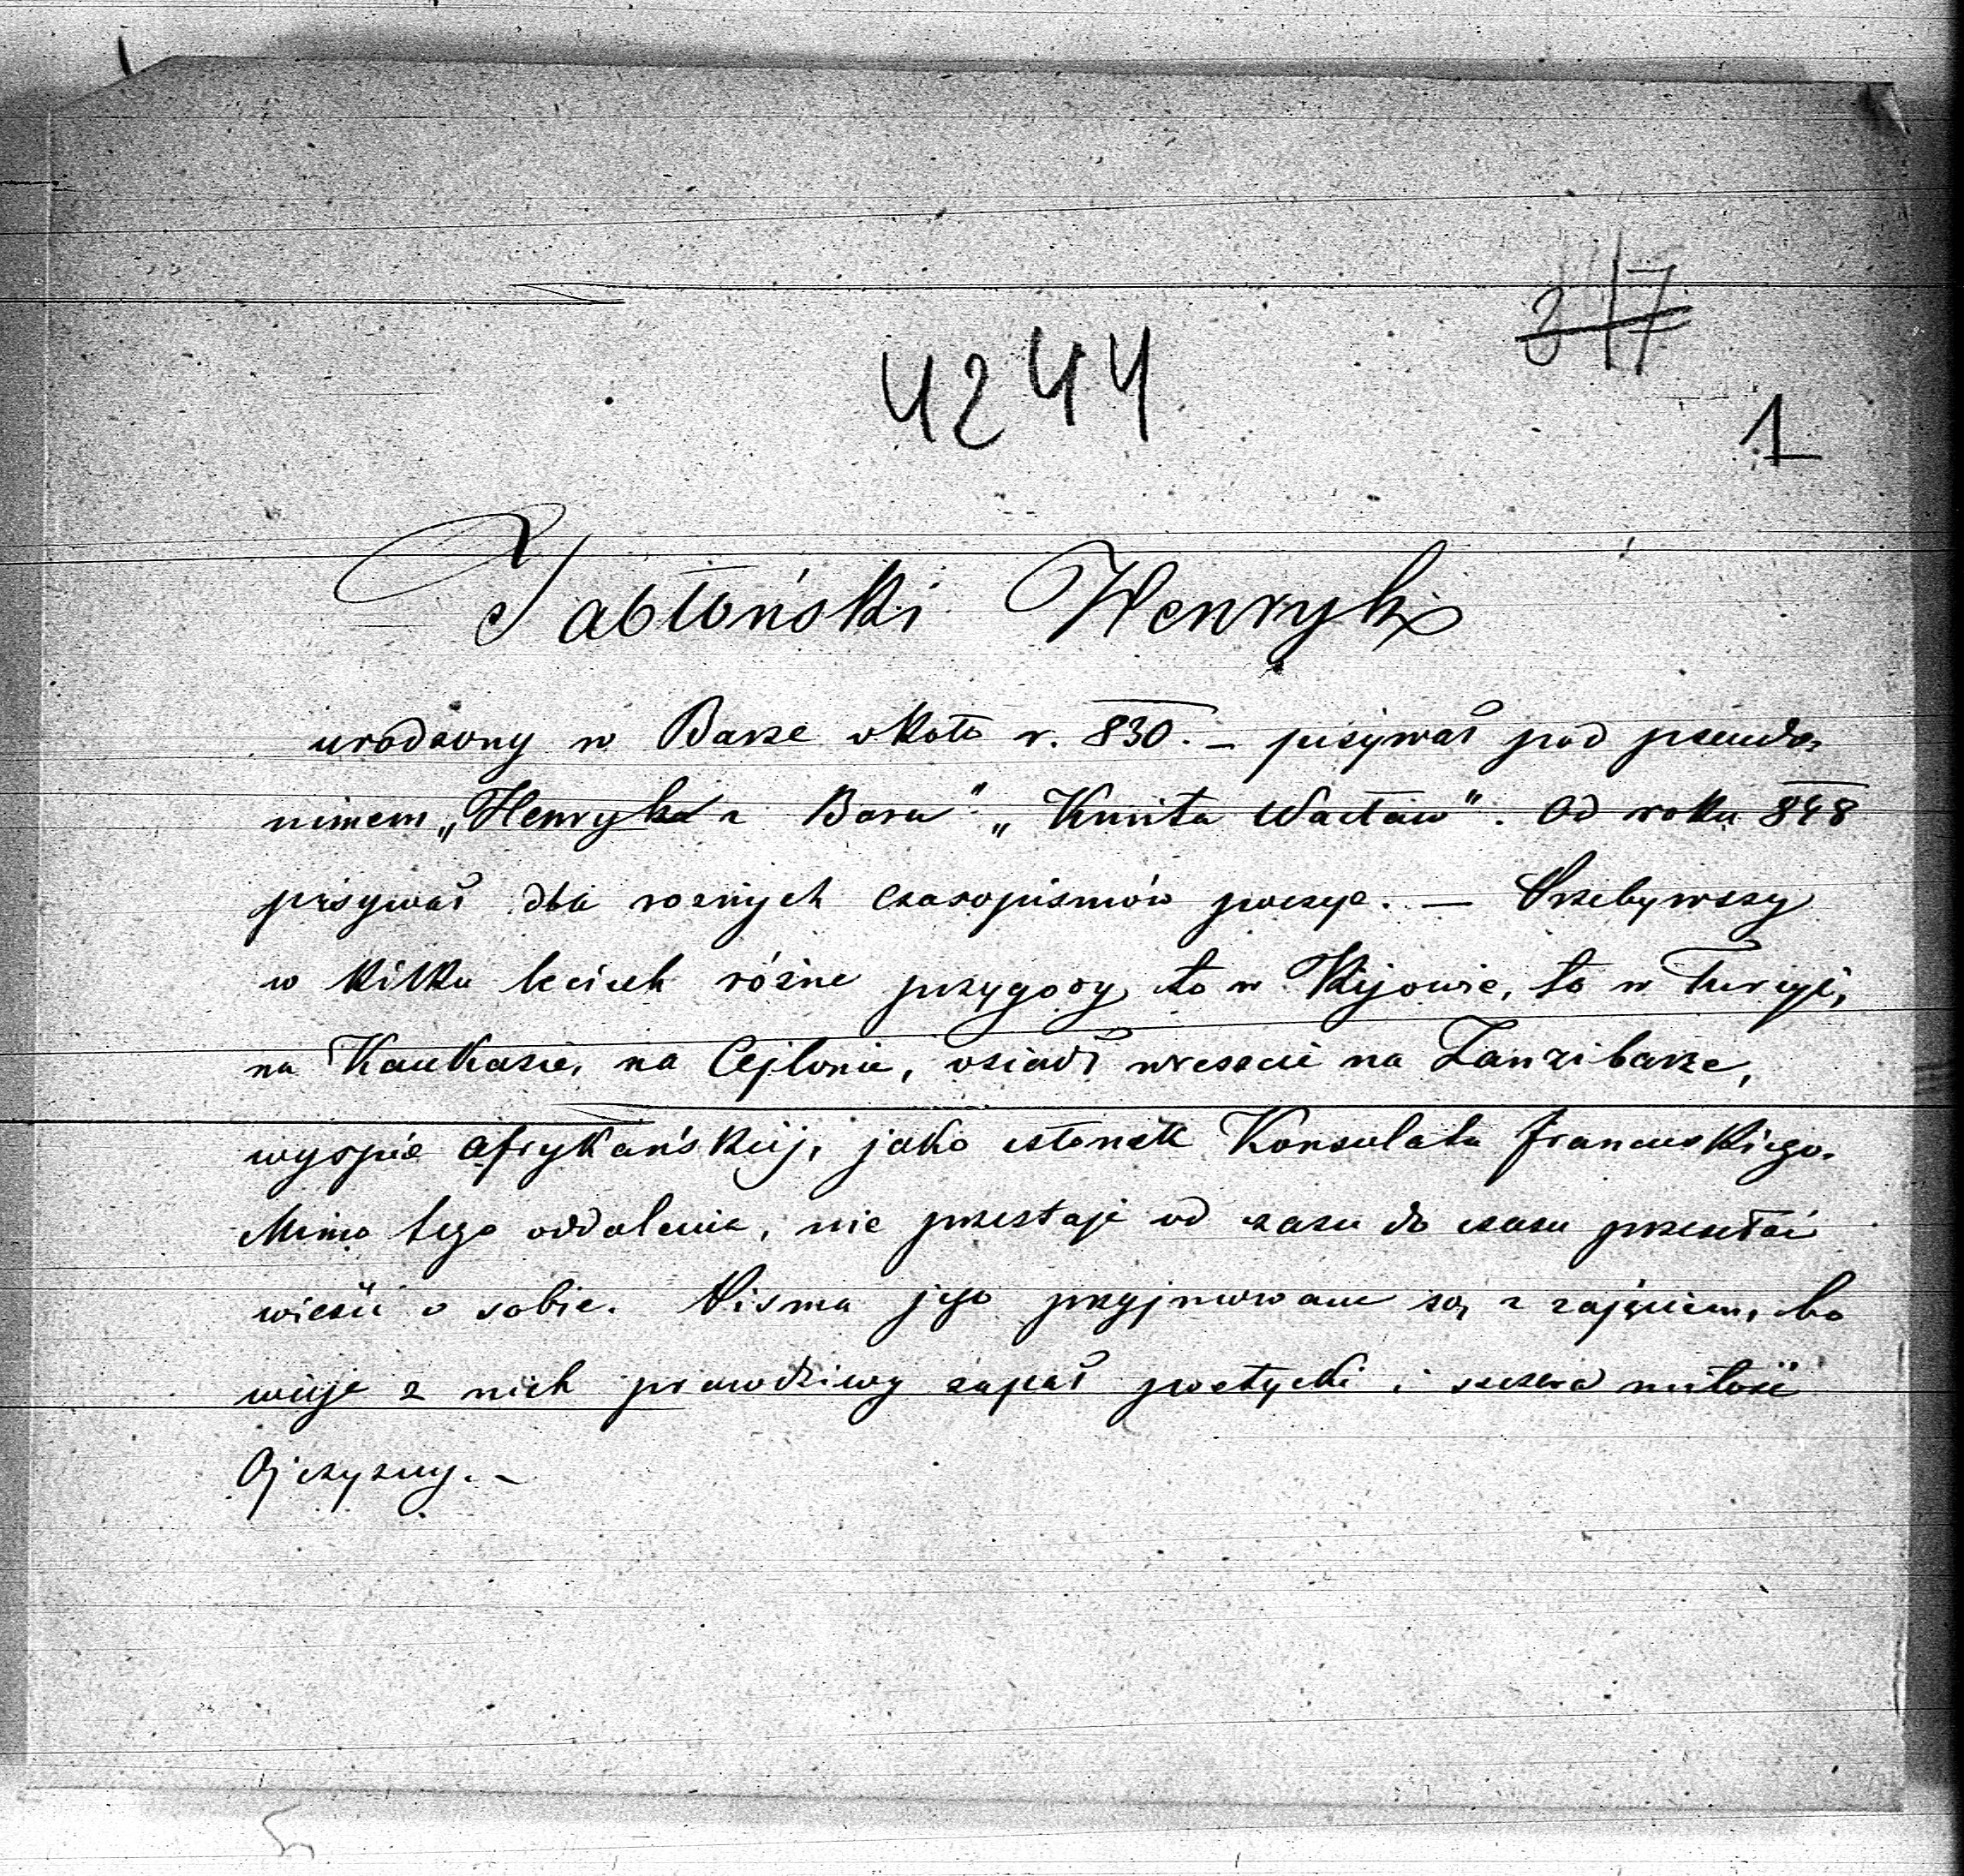 317
4244
1
Jabłoński Henryk
urodzony w Barze około r. 830. — pisywał pod pseudo-
nimem „Henryk z Baru" „Kmita Wacław". Od roku 848
pisywał dla roznych czasopismów poezye. — Przebywszy
w kilku leciech różne przygody to w Kijowie, to w Turcyi,
na Kaukazie, na Cejlonie, osiadł wreszcie na Zanzibarze,
wyspie afrykańskiej, jako członek Konsulatu francuskiego.
Mimo tego oddalenia, nie przestaje od czasu do czasu przesełać
wieści o sobie. Pisma jego przyjmowane są z zajęciem, bo
wieje z nich prawdziwy zapał poetycki i szczera miłość
Ojczyzny. —